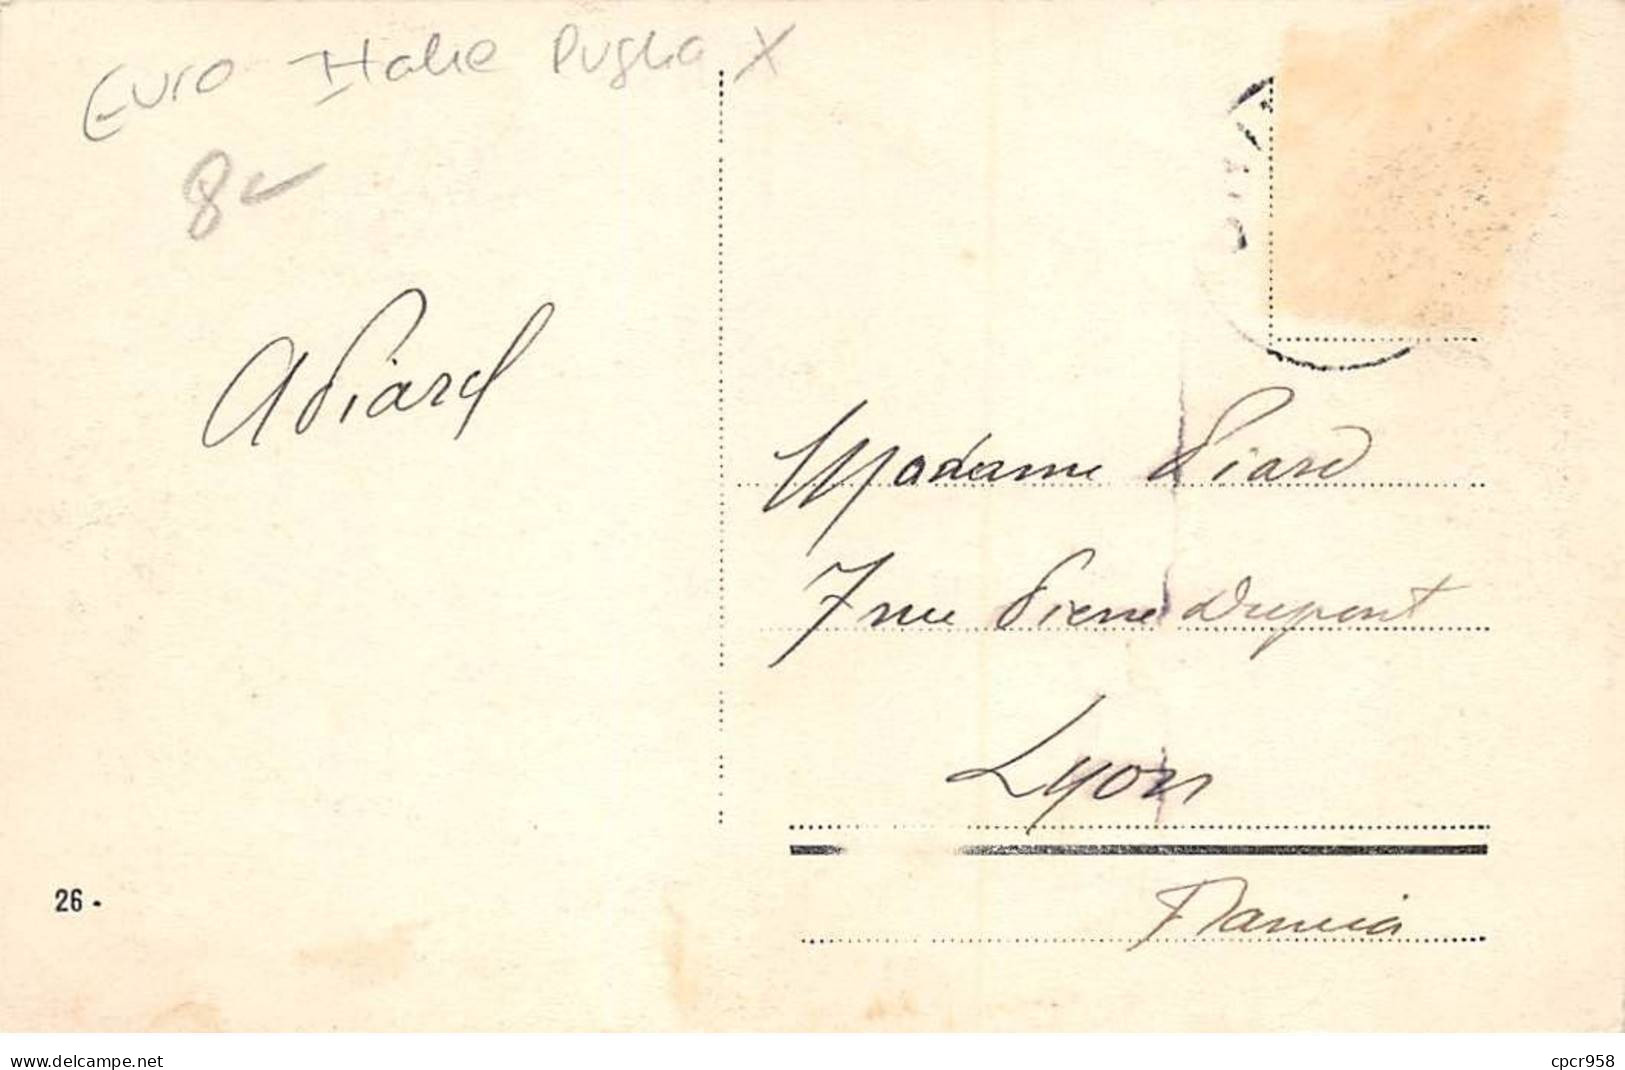 Euro Italie Puglia X
8
A Piard
Madame Piard
7 rue Pierre Dupont
Lyon
Francia
26.
www.delcampe.net
cpcr958